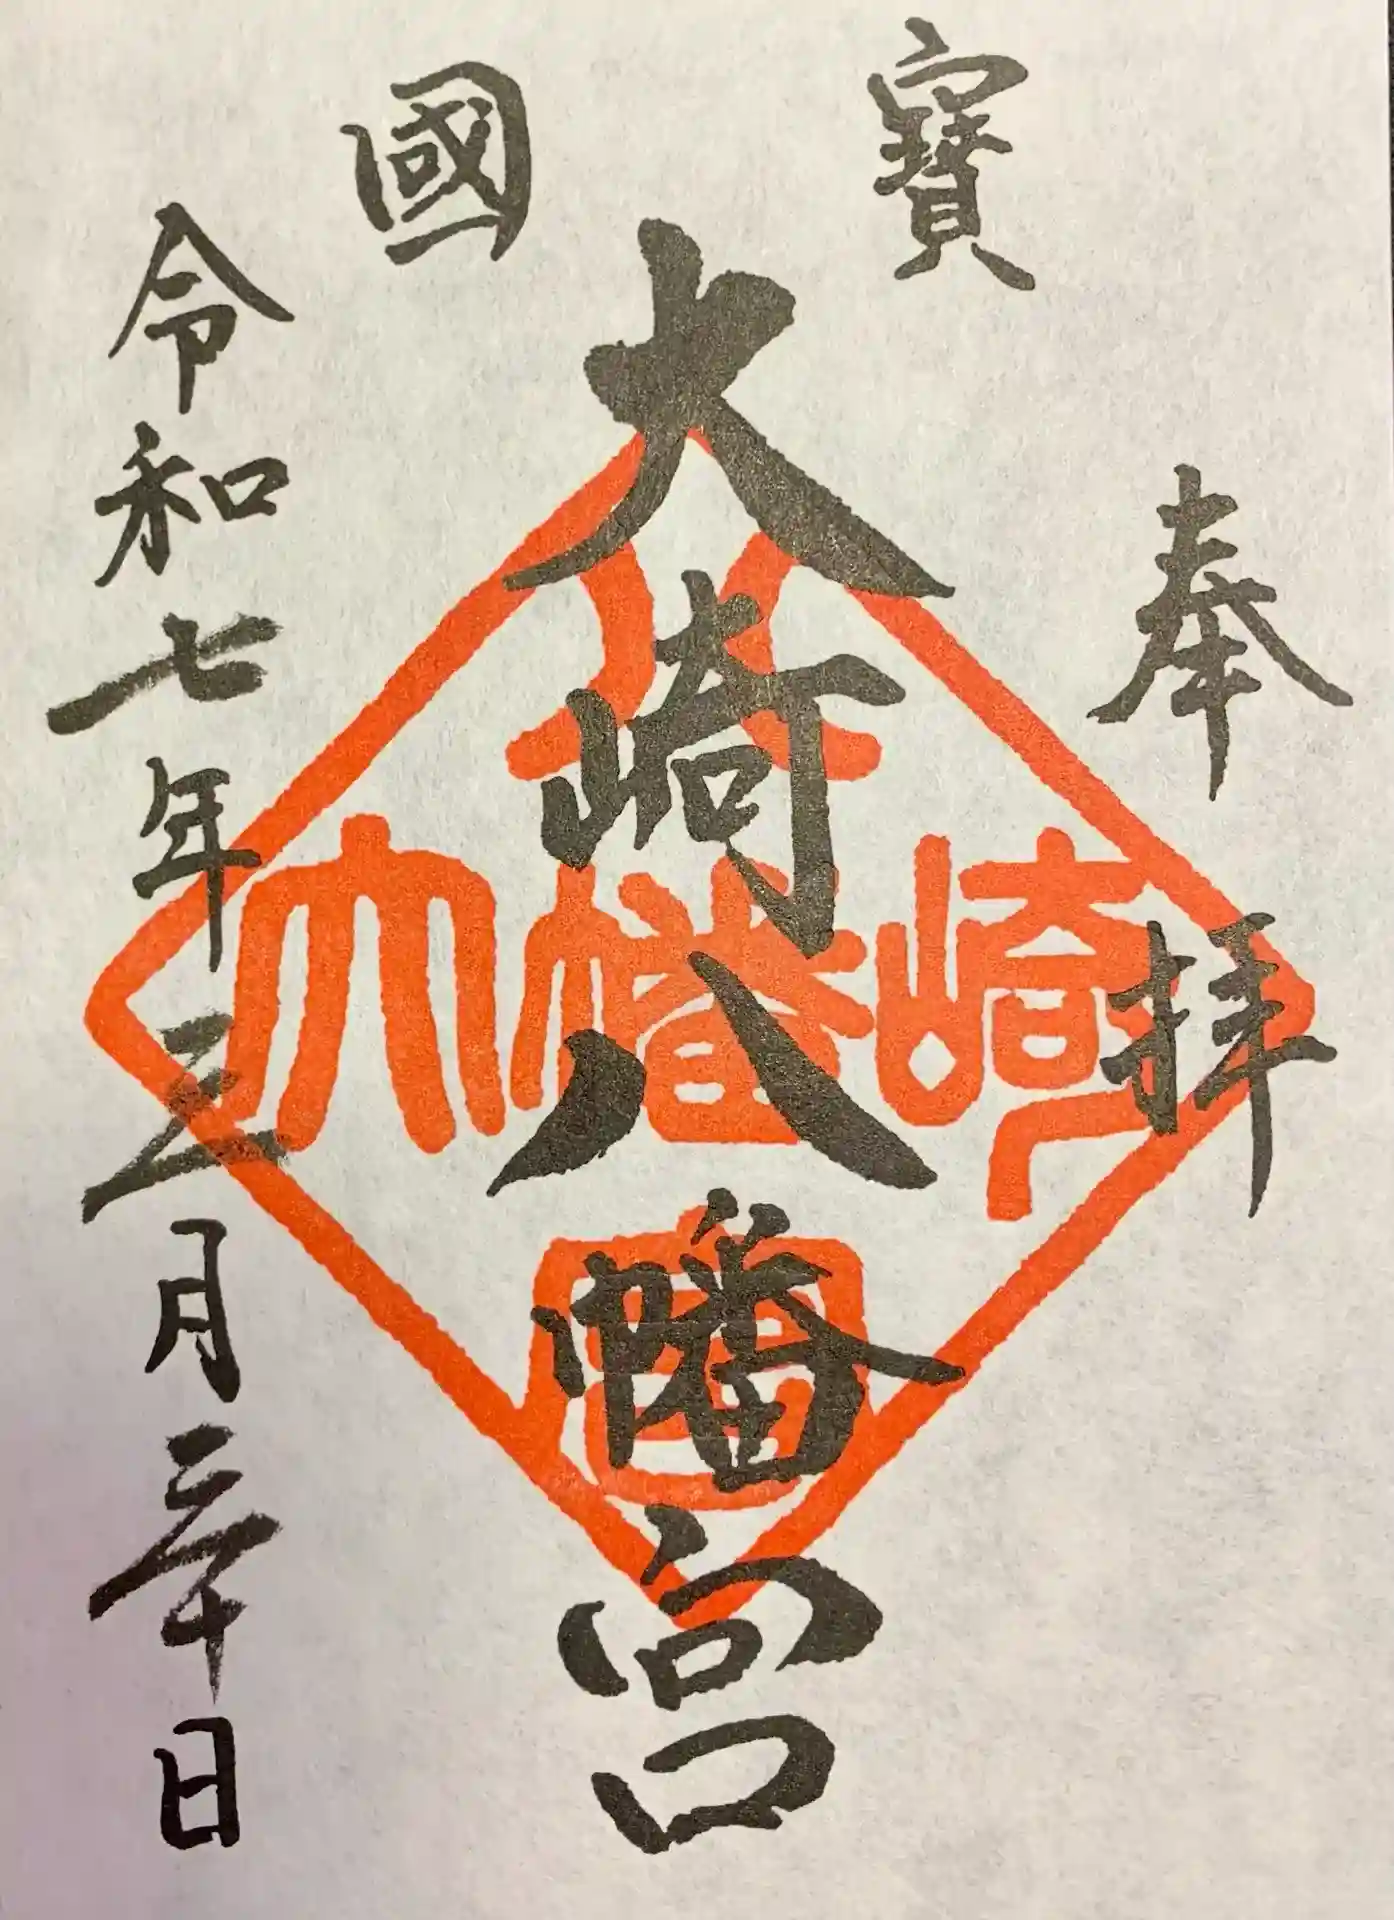 奉拝
寶國
大崎八幡宮
大崎八幡宮
令和七年三月三十日